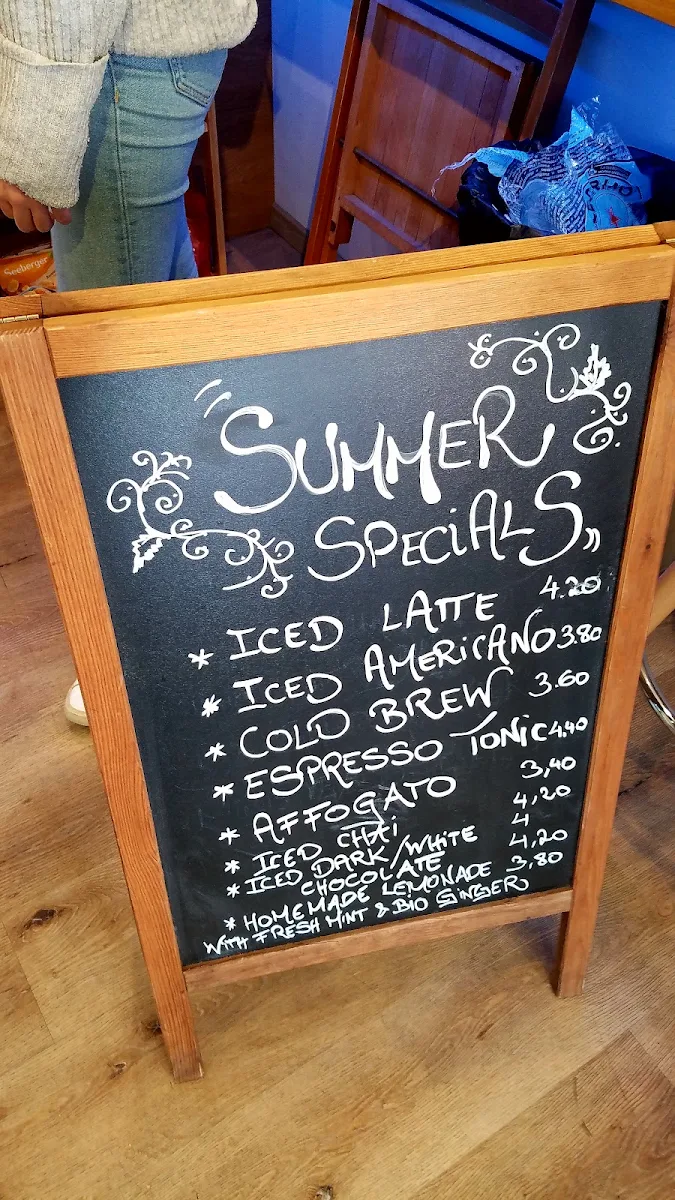 Seeberger
"SUMMER
SPECIALS"
* ICED LATTE 4.20
* ICED AMERICANO 3.80
* COLD BREW 3.60
* ESPRESSO TONIC 4,40
* AFFOGATO 3,40
* ICED CHAI 4,20
* ICED DARK/WHITE 4
CHOCOLATE 4,20
* HOMEMADE LEMONADE 3,80
WITH FRESH MINT & BIO GINGER